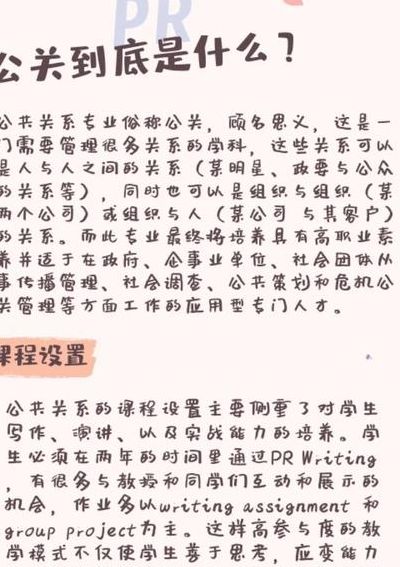 PR
公关到底是什么？
公共关系专业俗称公关，顾名思义，这是一
门需要管理很多关系的学科，这些关系可以
是人与人之间的关系（某明星、政要与公众
的关系等），同时也可以是组织与组织（某
两个公司）或组织与人（某公司 与其客户）
的关系。而此专业最终将培养具有高职业素
养并适于在政府、企事业单位、社会团体从
事传播管理、社会调查、公共策划和危机公
关管理等方面工作的应用型专门人才。
课程设置
公共关系的课程设置主要侧重了对学生
写作、演讲、以及实战能力的培养。学
生必须在两年的时间里通过PR Writing
，有很多与教授和同学们互动和展示的
机会，作业多以writing assignment 和
group project为主。这样高参与度的教
学模式不仅使学生善于思考，应变能力